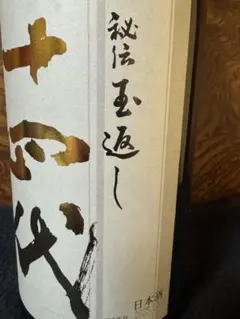 十四代
秘伝玉返し
日本酒